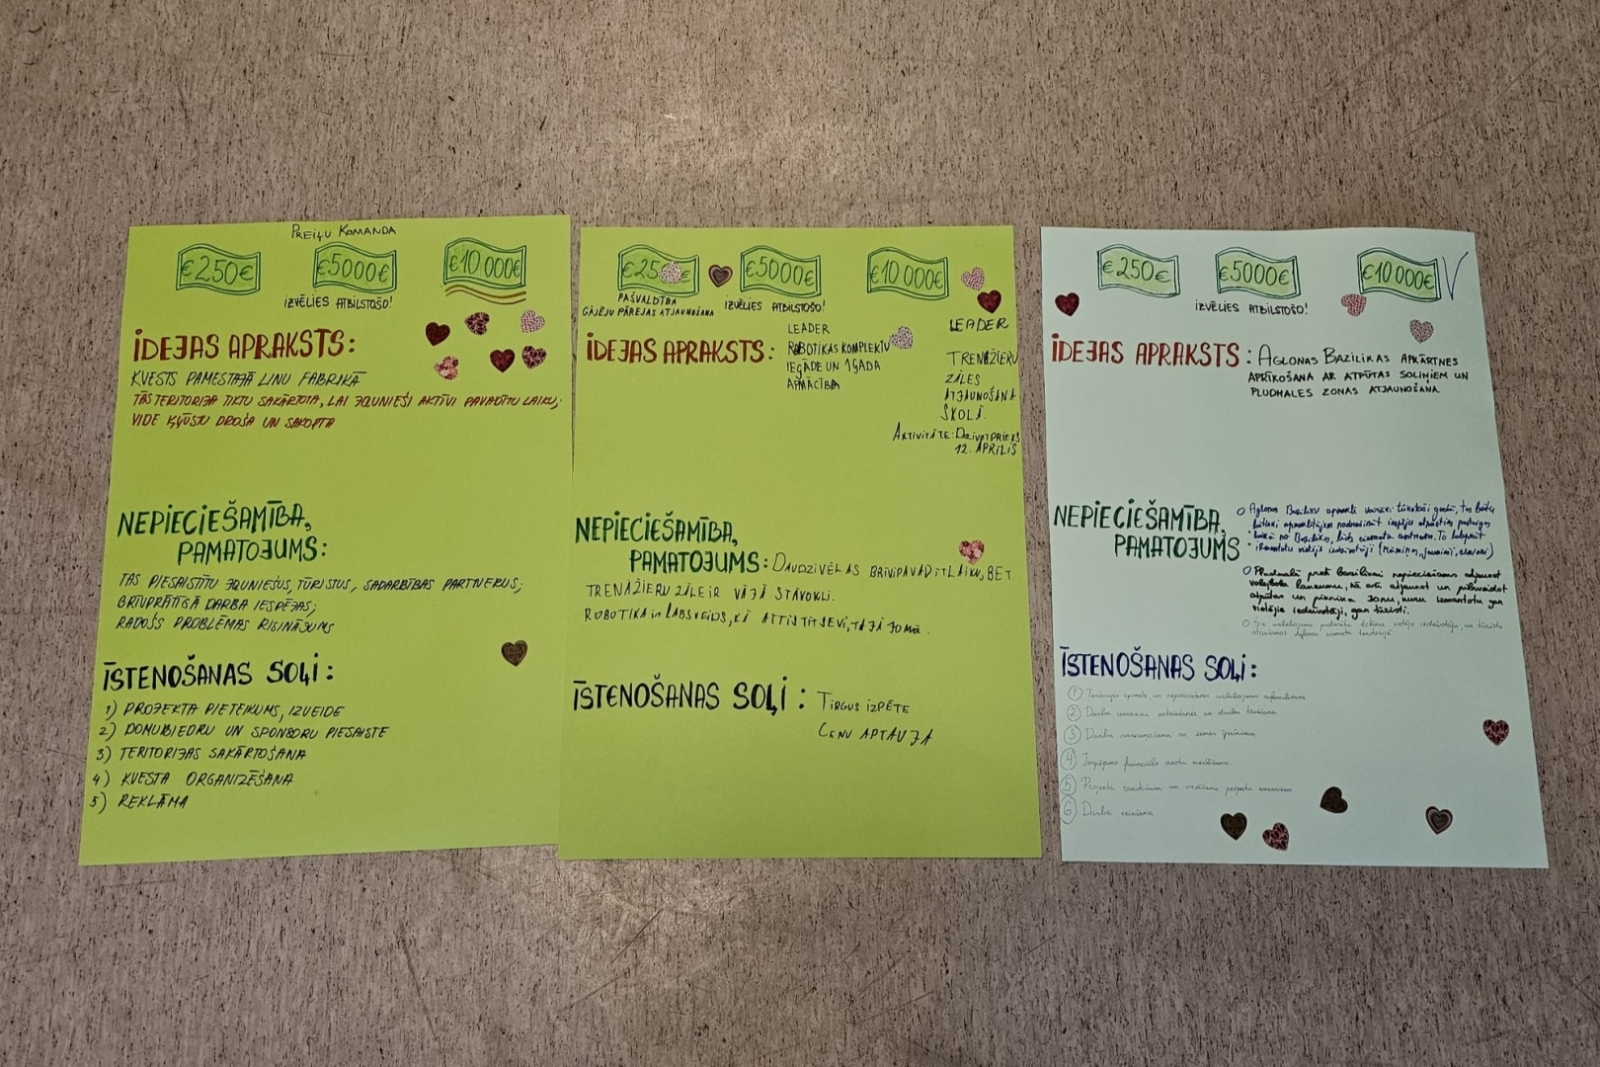 PREIĻU KOMANDA
€250€
€5000€
€10 000€
IZVĒLIES ATBILSTOŠO!
IDEJAS APRAKSTS:
KVESTS PAMESTAJĀ LINU FABRIKĀ
TĀS TERITORIJA TIKTU SAKĀRTOTA, LAI JAUNIEŠI AKTĪVI PAVADĪTU LAIKU;
VIDE KĻŪSTU DROŠA UN SAKOPTA
NEPIECIEŠAMĪBA,
PAMATOJUMS:
TAS PIESAISTĪTU JAUNIEŠUS, TŪRISTUS, SADARBĪBAS PARTNERUS;
BRĪVPRĀTĪGĀ DARBA IESPĒJAS;
RADOŠS PROBLĒMAS RISINĀJUMS
ĪSTENOŠANAS SOĻI:
1) PROJEKTA PIETEIKUMS, IZVEIDE
2) DOMUBIEDRU UN SPONSORU PIESAISTE
3) TERITORIJAS SAKĀRTOŠANA
4) KVESTA ORGANIZĒŠANA
5) REKLĀMA
€25 €
€5000€
€10 000€
PAŠVALDĪBA
GĀJĒJU PĀREJAS ATJAUNOŠANA
IZVĒLIES ATBILSTOŠO!
IDEJAS APRAKSTS:
LEADER
ROBOTIKAS KOMPLEKTU
IEGĀDE UN 1 GADA
APMĀCĪBA
LEADER
TRENAŽIERU
ZĀLES
ATJAUNOŠANA
SKOLĀ.
AKTIVITĀTE: DZĪVOTPRIEKS
12. APRĪLIS
NEPIECIEŠAMĪBA,
PAMATOJUMS: DAUDZI VĒLAS BRĪVI PAVADĪT LAIKU, BET
TRENAŽIERU ZĀLE IR VĀJĀ STĀVOKLĪ.
ROBOTIKA IR LABS VEIDS, KĀ ATTĪSTĪT SEVI, TAJĀ JOMĀ.
ĪSTENOŠANAS SOĻI: TIRGUS IZPĒTE
CENU APTAUJA
€250€
€5000€
€10 000€ V
IZVĒLIES ATBILSTOŠO!
IDEJAS APRAKSTS: AGLONAS BAZILIKAS APKĀRTNES
APRĪKOŠANA AR ATPŪTAS SOLIŅIEM UN
PLUDMALES ZONAS ATJAUNOŠANA.
NEPIECIEŠAMĪBA,
PAMATOJUMS
Aglonas Baziliku apmeklē vairāki tūkstoši gadā, tas būtu
Pludmalē pretī bazilikai nepieciešams atjaunot
volejbola laukumu, kā arī atjaunot un pilnveidot
atpūtas un piknika zonu, kuru izmantotu gan
vietējie iedzīvotāji, gan tūristi.
ĪSTENOŠANAS SOĻI:
1 Teritorijas apsekošana un nepieciešamo uzlabojumu
2
3
4
5 Projekta
6 Darbu veikšana